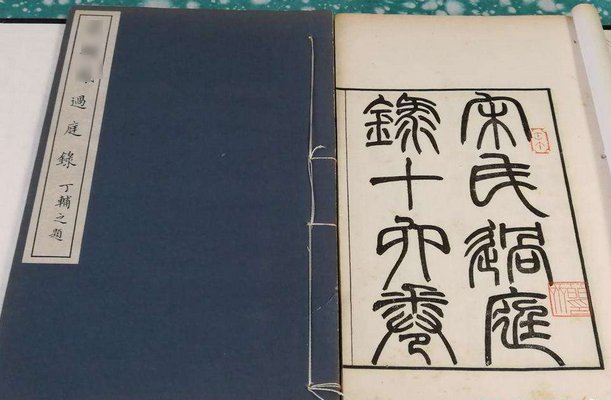 過庭錄
丁輔之題
宋氏過庭
錄十卷